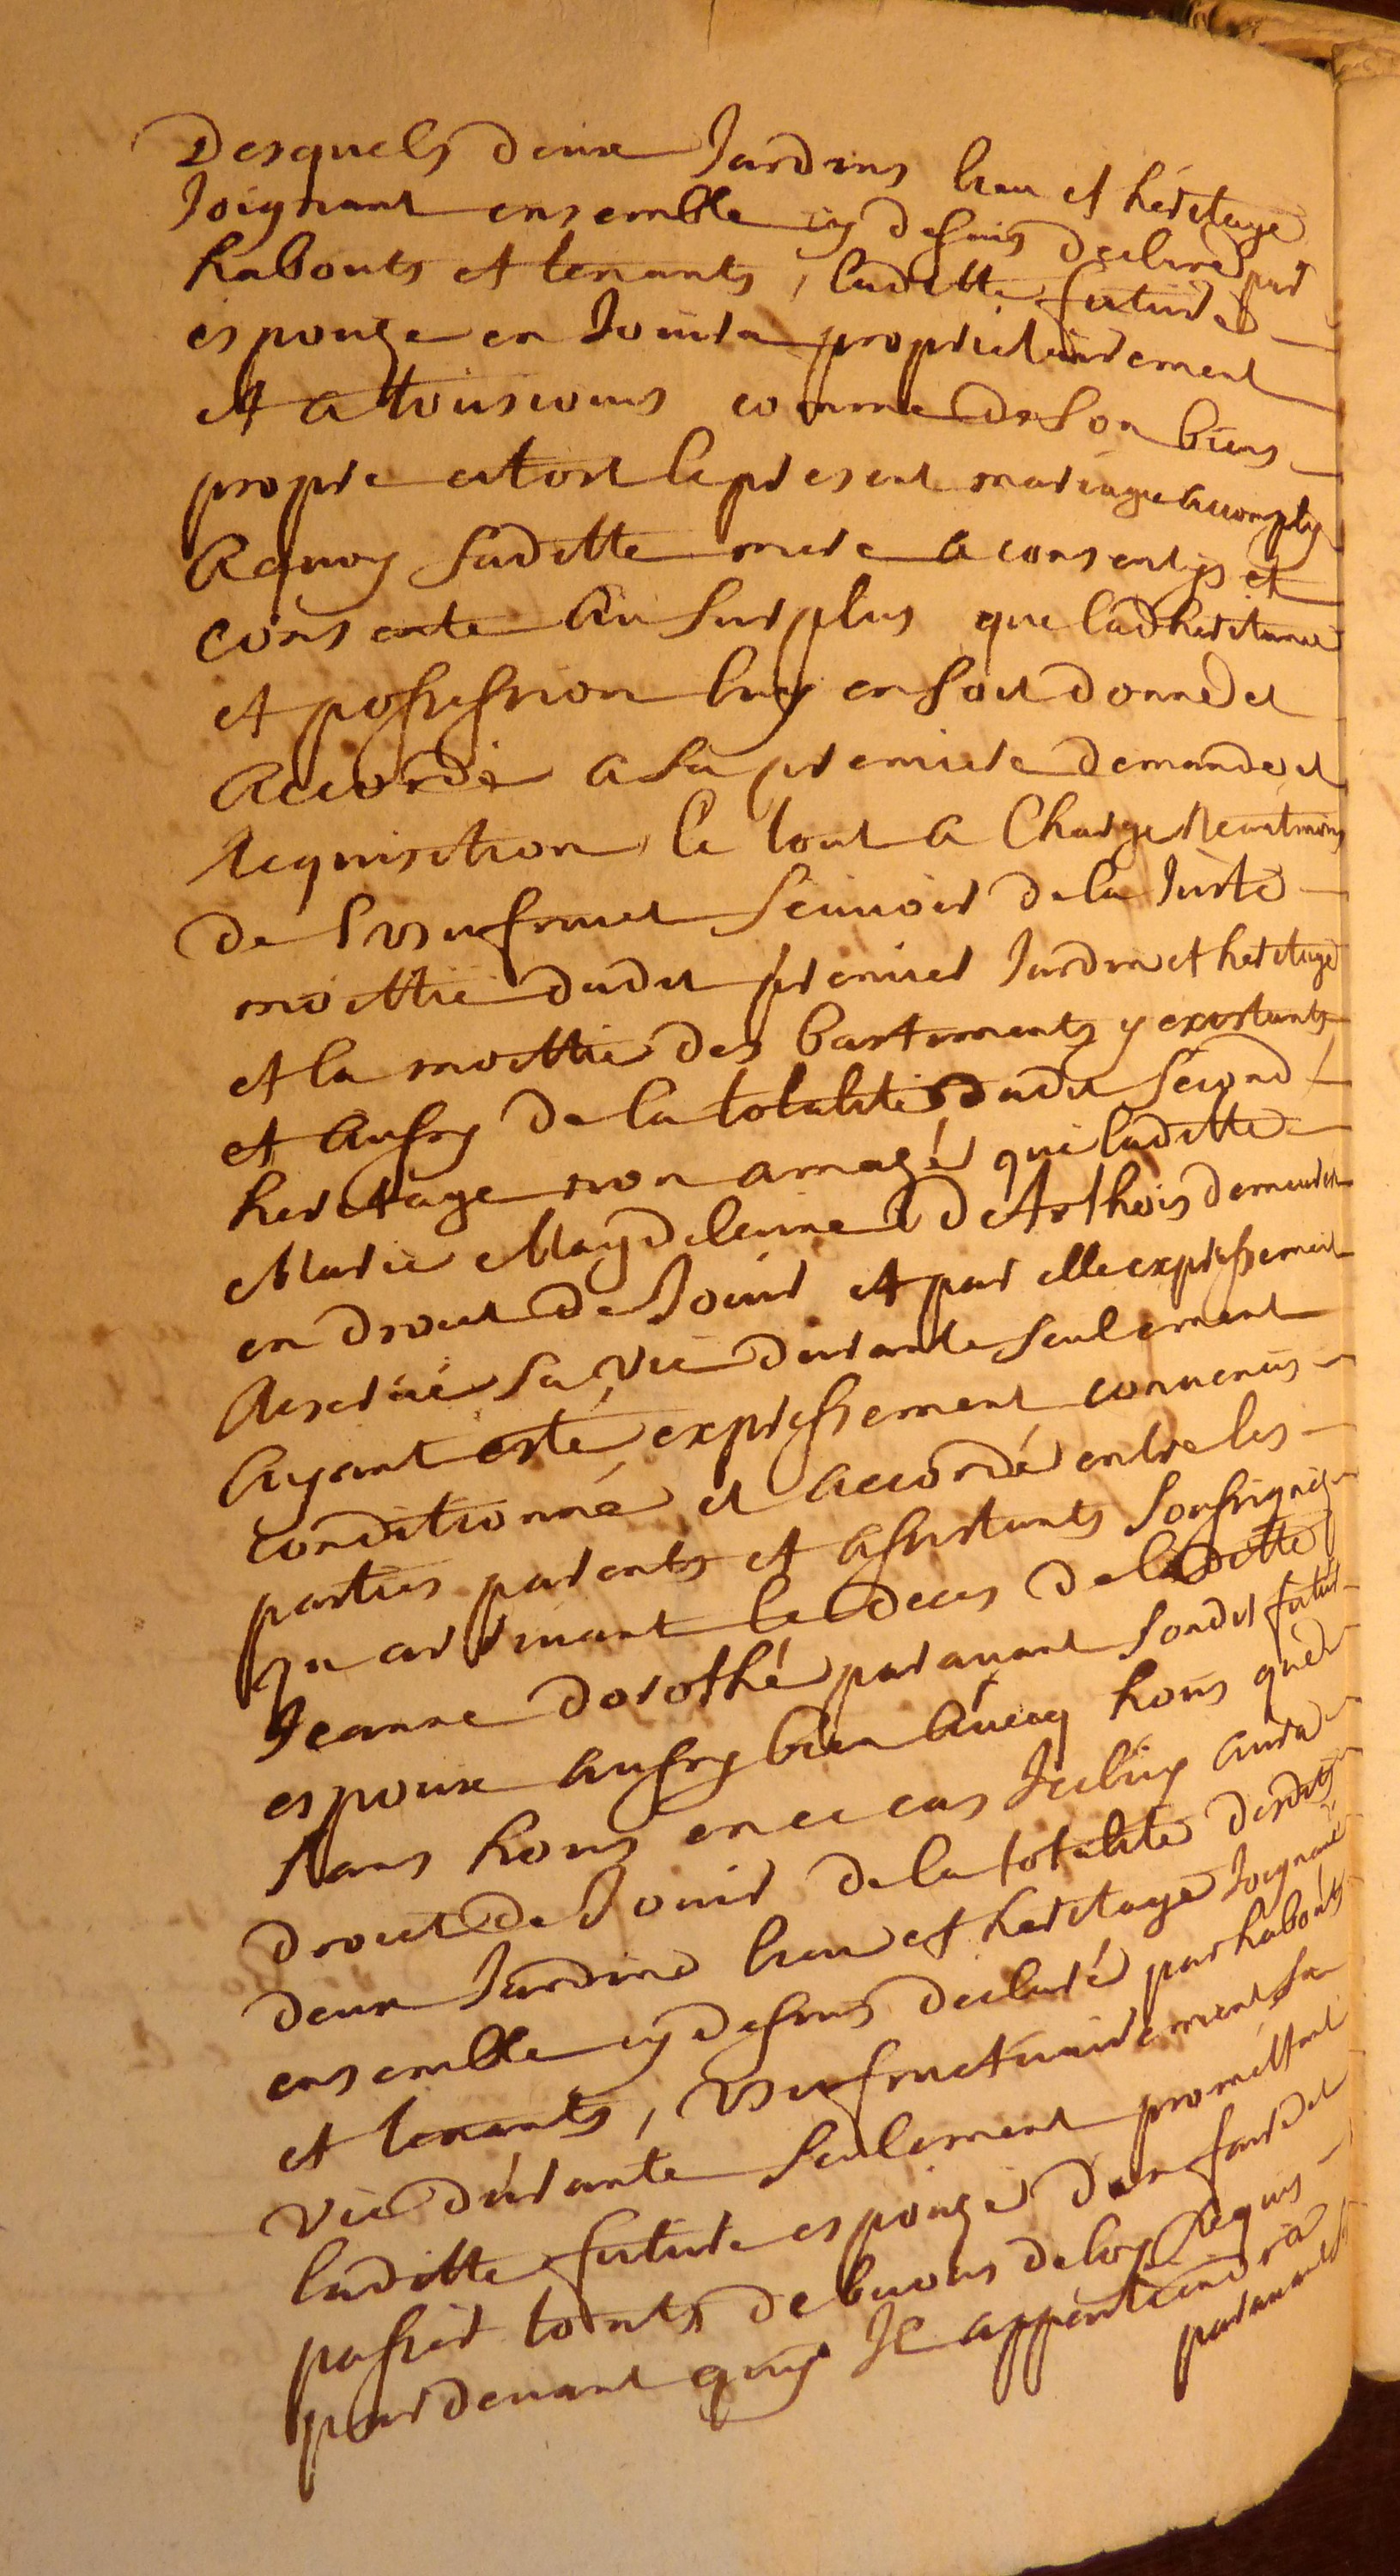 Desquels deux Jardins lieu et héritage
Joignant ensemble cy dessus declaré par
habouts et tenants, laditte future
espouze en Jouira proprietairement
et a tousiours comme de son biens
propre estost le present mariage accomply
A quoy saditte mere a consenty et
consente au surplus que ladheritance
et possession luy en soit donné et
accordé a sa premiere demande et
Requisition, le tout a Charge Neantmoins
de l'usufruict scauoir de la Juste
moittié dudit premier Jardin et heritage
et la moittié des bastiments y existants
et aussy de la totalité dudit second
heritage non amazé que laditte
Marie Magdeleinne d'Arthois demeurer
en droict de Jouir et par elle expressement
Reserué sa vie durante seulement
Ayant esté expressement conuenus
conditionné et accordé entre les
parties parents et assistants soussignéz
qu'arriuant le deces de laditte
Jeanne dorothé parauant sondit futur
espoux aussy bien auecq hoirs que
sans hoirs en ce cas Iceluy aura
droict de Jouir de la totalité desdits
deux Jardins lieu et heritage Joignant
ensemble cy dessus declaré par habouts
et tenants, usufructuairement sa
vie durante seulement promettant
laditte future espouze d'en faire et
passer touts debuoirs de loy Requis
pardeuant quy Il appertiendra
parauant